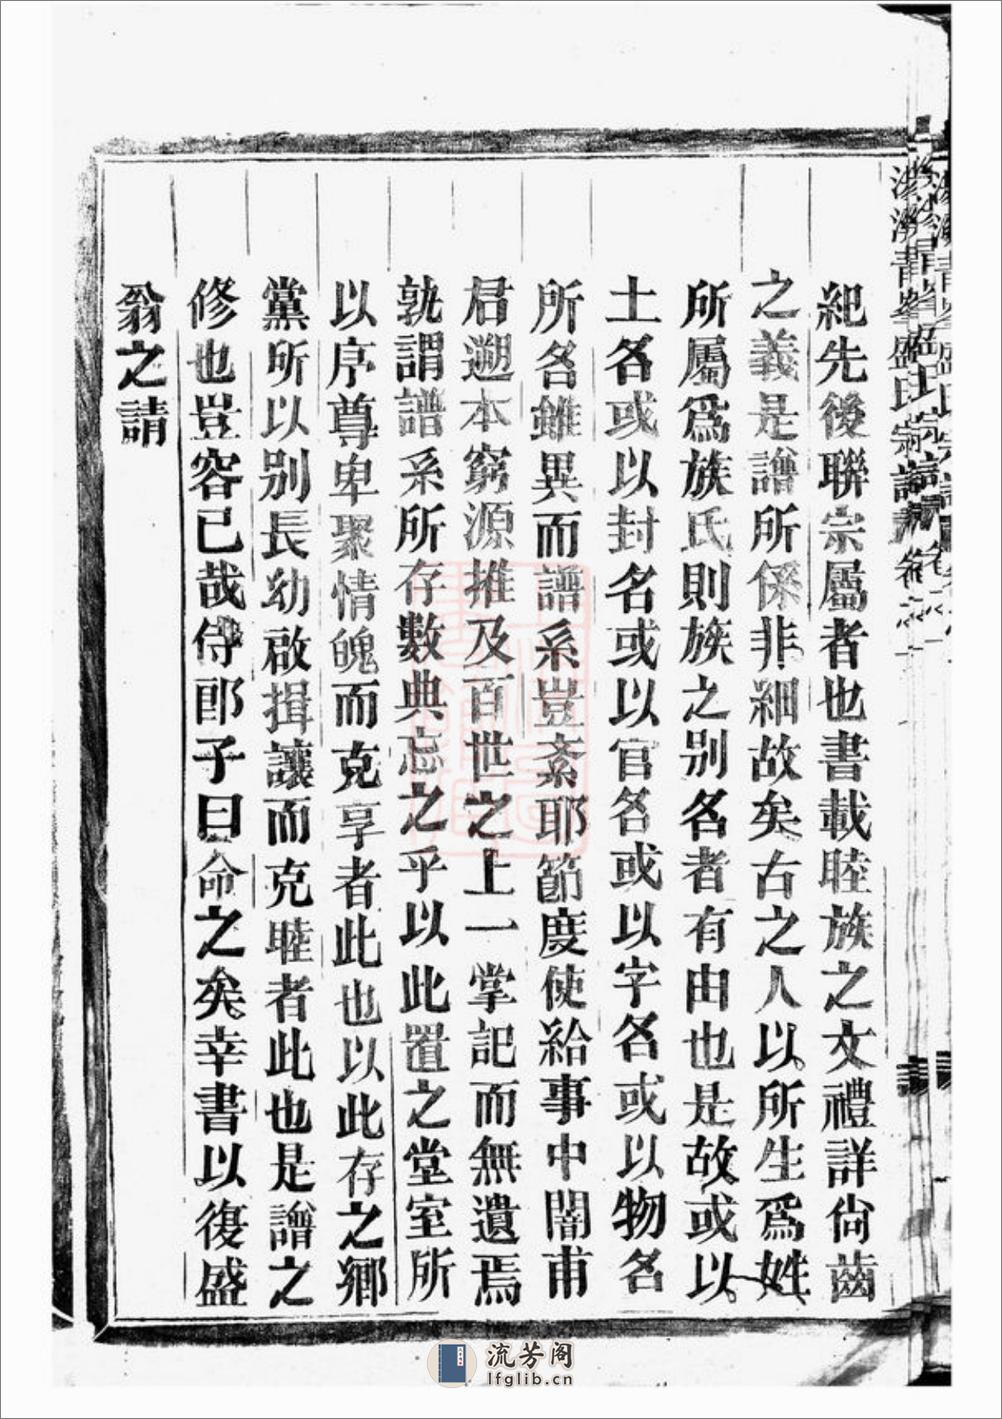 紀先後聯宗屬者也書載睦族之文禮詳尙齒
之義是譜所係非細故矣古之人以所生爲姓
所屬爲族氏則族之别名者有由也是故或以
土名或以封名或以官名或以字名或以物名
所名雖異而譜系豈紊耶節度使給事中闇甫
君遡本窮源推及百世之上一掌記而無遺焉
孰謂譜系所存數典忘之乎以此置之堂室所
以序尊卑聚情魄而克享者此也以此存之鄉
黨所以别長幼啟揖讓而克睦者此也是譜之
修也豈容已哉侍郎子曰命之矣幸書以復盛
翁之請
青峯盛氏宗譜
流芳阁
lfglib.cn